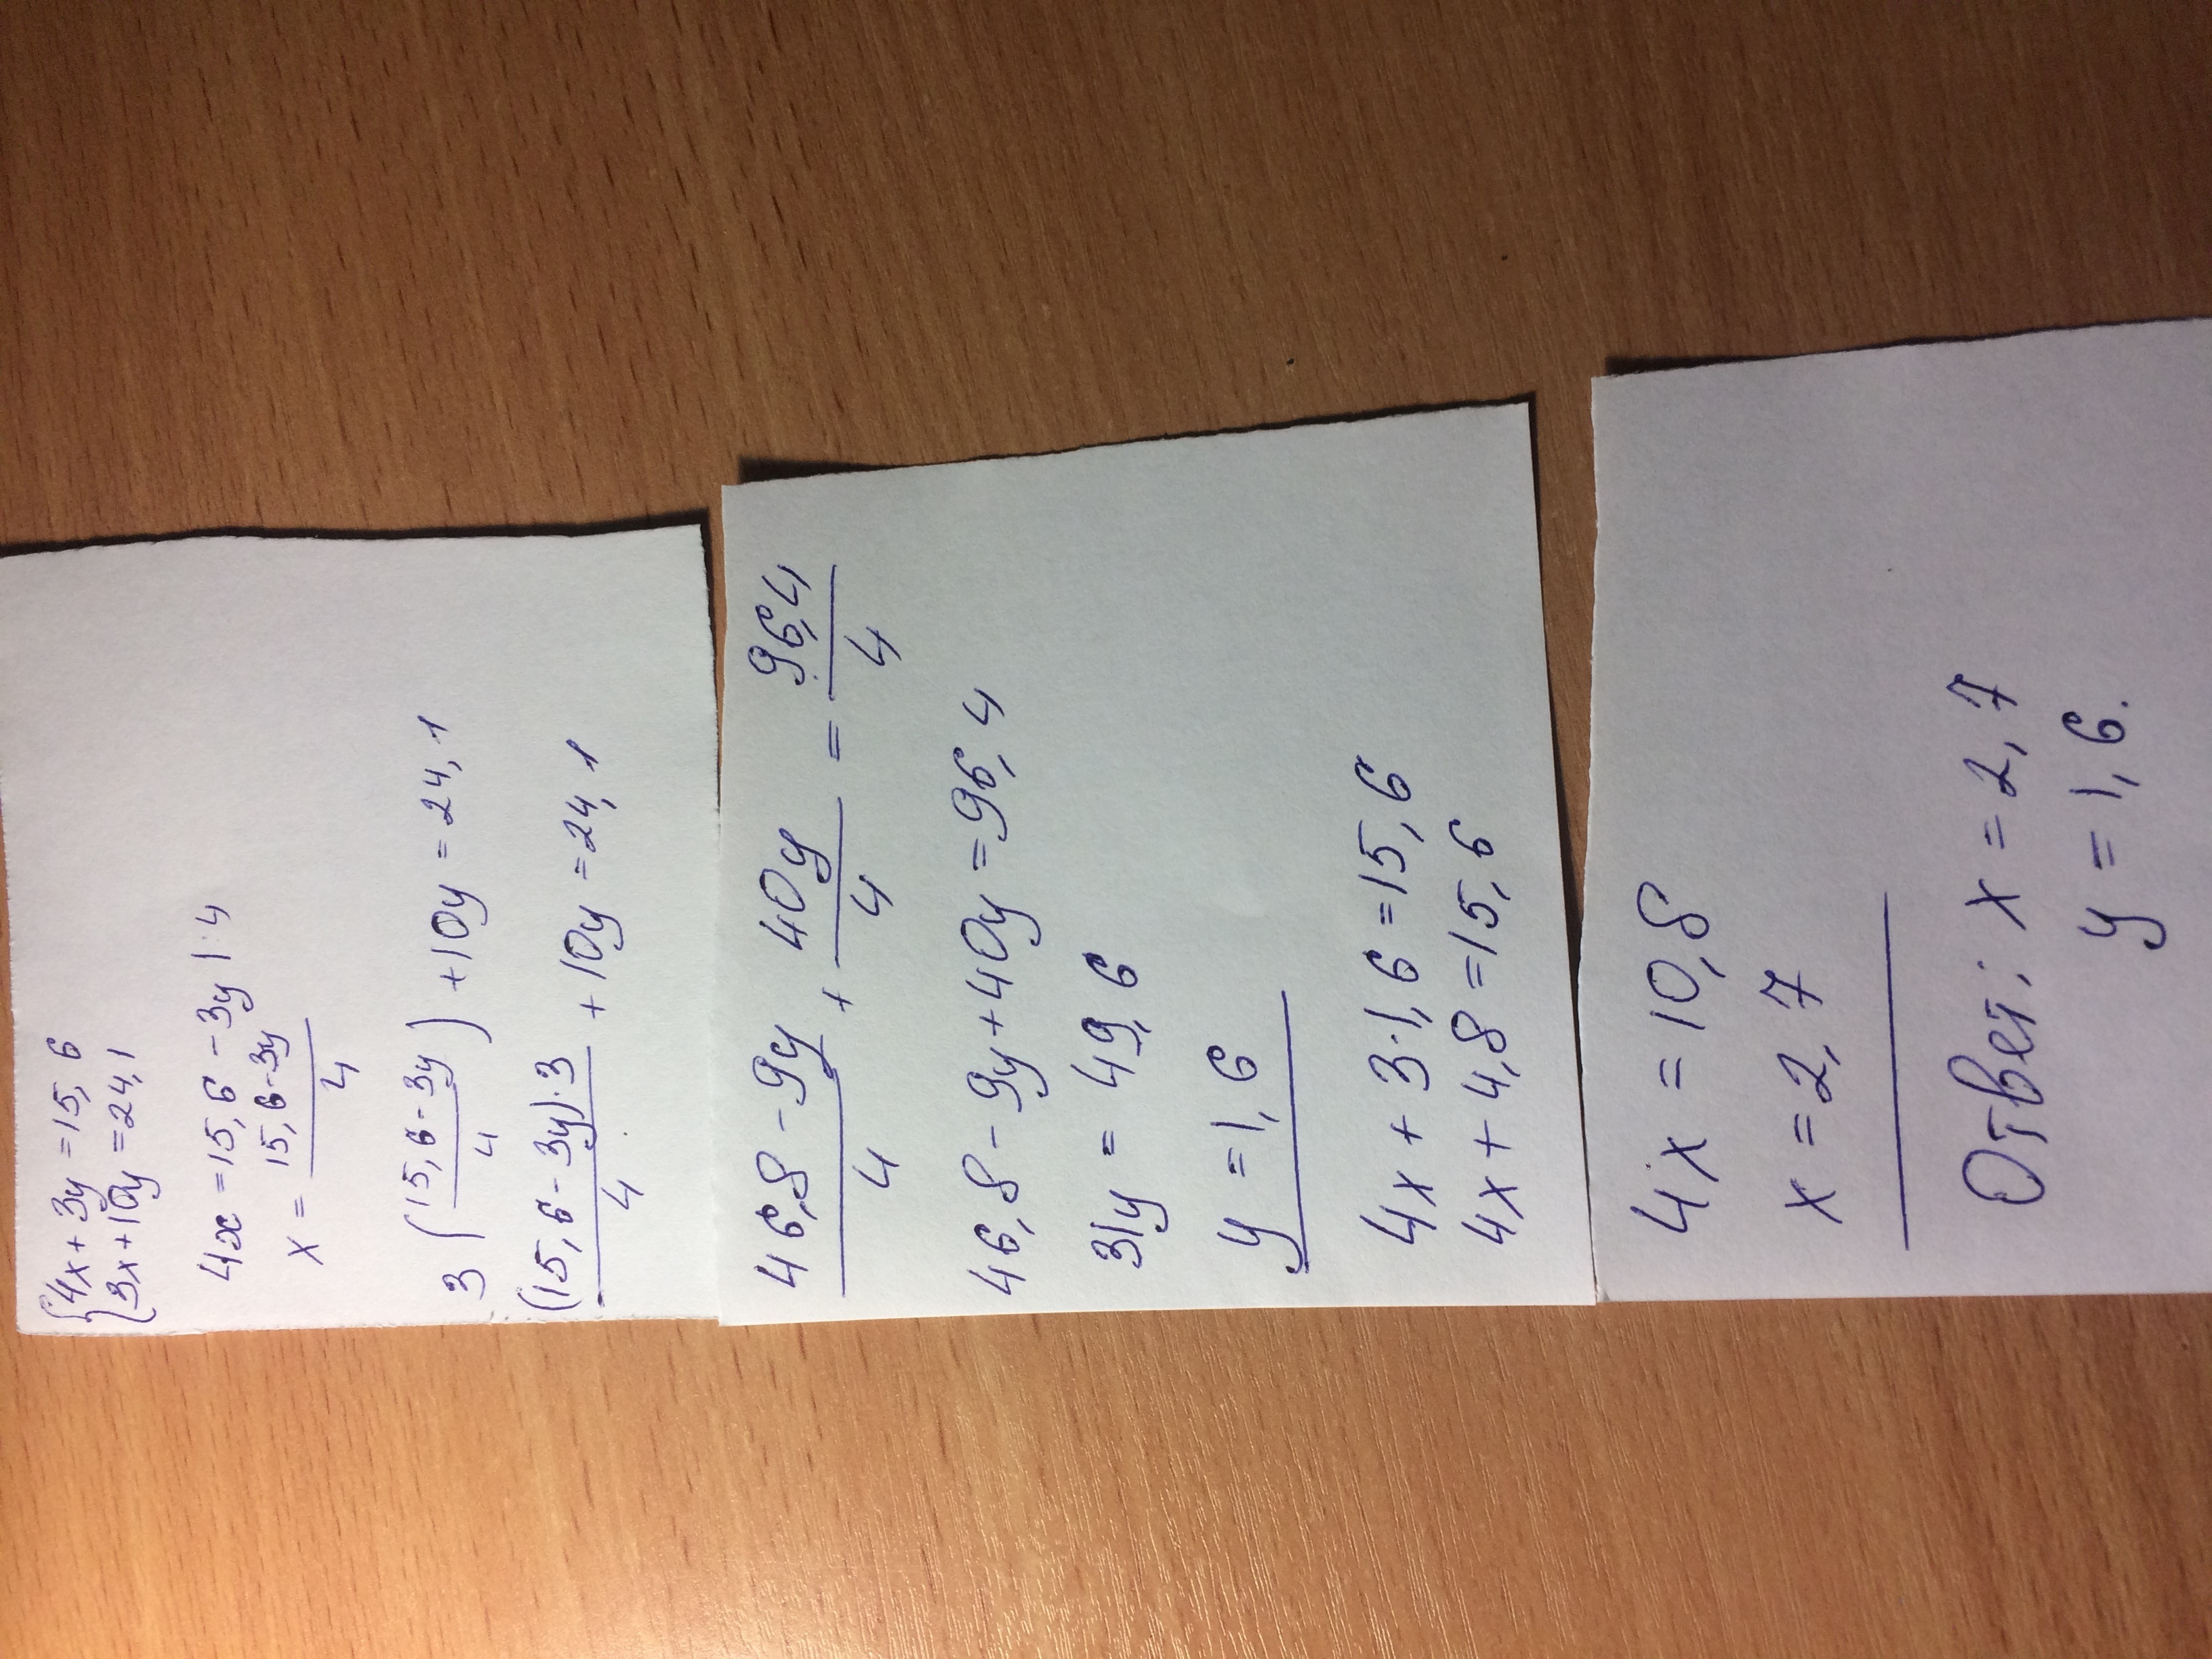 {4x + 3y = 15,6
{3x + 10y = 24,1
4x = 15,6 - 3y | : 4
x = (15,6 - 3y)/4
3 ((15,6 - 3y)/4) + 10y = 24,1
((15,6 - 3y) · 3)/4 + 10y = 24,1
(46,8 - 9y)/4 + 40y/4 = 96,4/4
46,8 - 9y + 40y = 96,4
31y = 49,6
y = 1,6
4x + 3 · 1,6 = 15,6
4x + 4,8 = 15,6
4x = 10,8
x = 2,7
Ответ: x = 2,7
y = 1,6.